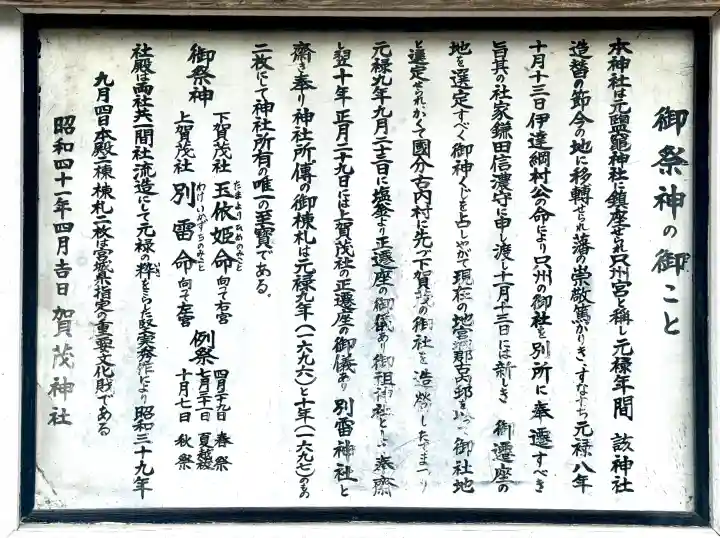 御祭神の御こと
本神社は元鹽竈神社に鎮座せられ只州宮と称し元禄年間 該神社
造替の節今の地に移轉せられ藩の崇敬篤かりき。すなはち元禄八年
十月十三日伊達綱村公の命により只州の御社を別所に奉遷すべき
旨其の社家鎌田信濃守に申し渡し十一月十三日には新しき 御遷座の
地を選定すべく御神くじを占しやがて現在の地宮城郡古内邨を以って御社地
と選定せられかくて國分古内村に先づ下賀茂の御社を造営したてまつり
元禄九年九月二十三日に塩釜より正遷座の御儀あり御祖神社ととふ奉齋
し翌十年正月二十九日には上賀茂社の正遷座の御儀あり 別雷神社と
齋き奉り神社所傳の御棟札は元禄九年(一六九六)と十年(一六九七)のもの
二枚にて神社所有の唯一の至寶である。
御祭神
下賀茂社 玉依姫命 たまよりひめのみこと 向って右宮
上賀茂社 別雷命 わけいかずちのみこと 向って左宮
例祭
四月二十九日 春祭
七月三十一日 夏越祓
十月七日 秋祭
社殿は両社共一間社流造にして元禄の粋をこらした堅実秀作により昭和三十九年
九月四日本殿二棟棟札二枚は宮城県指定の重要文化財である
昭和四十一年四月吉日 賀茂神社